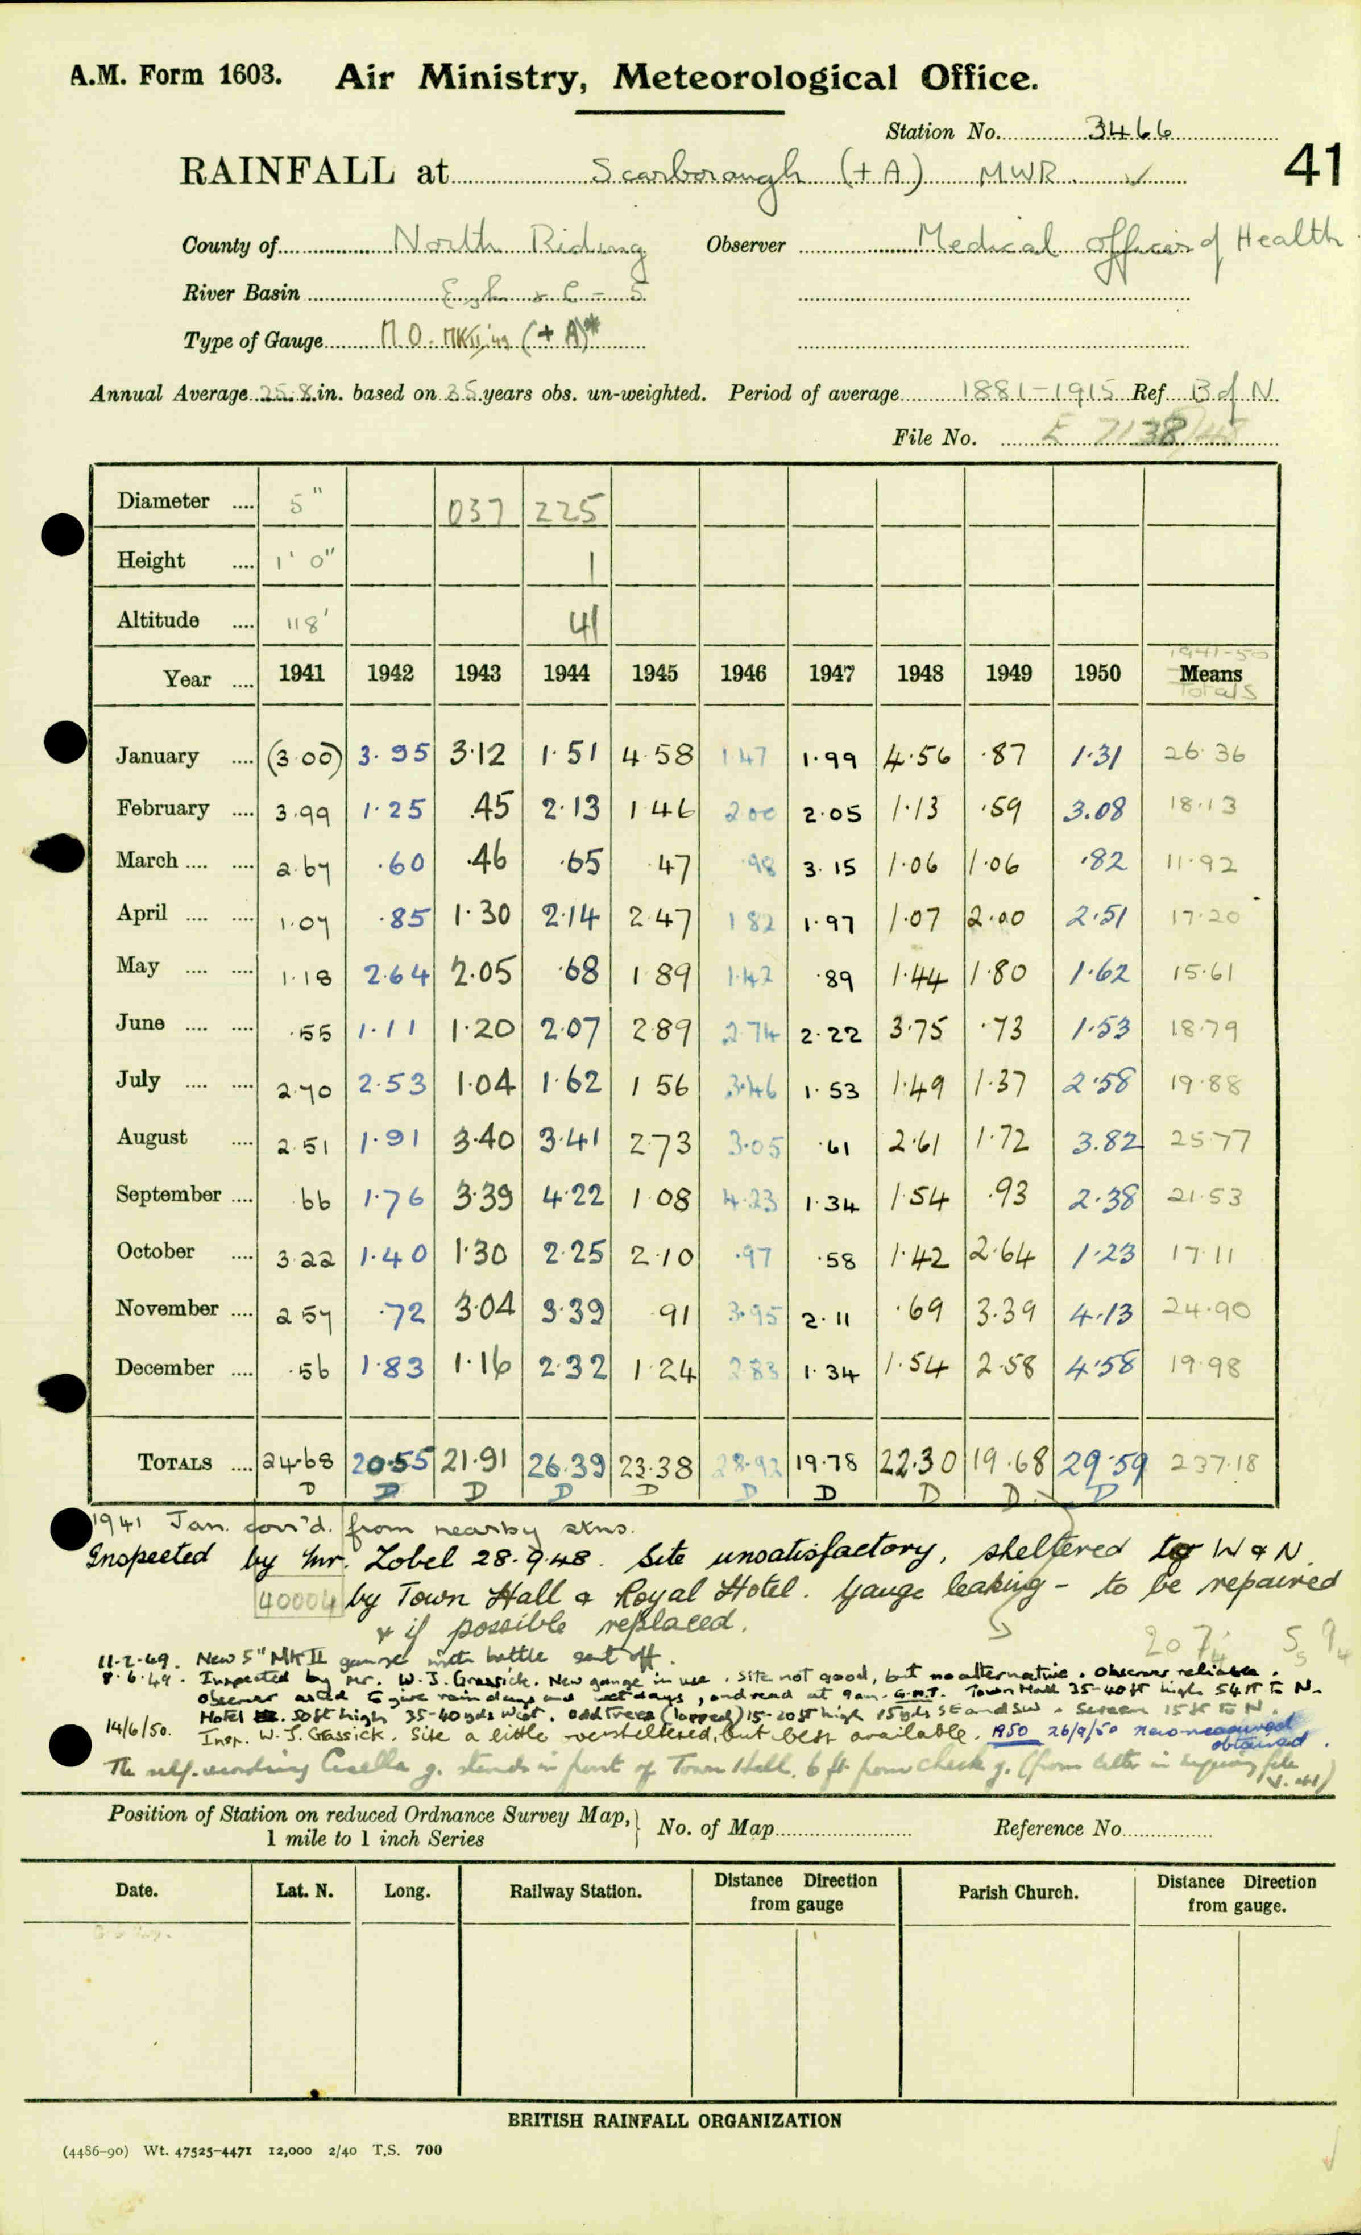 A.M. Form 1603. Air Ministry, Meteorological Office.
Station No. 3466
41
RAINFALL at Scarborough (+A) MWR ✓
County of North Riding Observer Medical Officer of Health
River Basin Esk & C - 5
Type of Gauge M O. MKII '49 (+ A)*
Annual Average 25.8 in. based on 35 years obs. un-weighted. Period of average 1881-1915 Ref B of N
File No. E 7138/48
Diameter .... 5" 037 225
Height .... 1' 0" 1
Altitude .... 118' 41
Year .... 1941 1942 1943 1944 1945 1946 1947 1948 1949 1950 1941-50 Means Totals
January .... (3.00) 3.95 3.12 1.51 4.58 1.47 1.99 4.56 .87 1.31 26.36
February .... 3.99 1.25 .45 2.13 1.46 2.00 2.05 1.13 .59 3.08 18.13
March .... .... 2.67 .60 .46 .65 .47 .98 3.15 1.06 1.06 .82 11.92
April .... .... 1.07 .85 1.30 2.14 2.47 1.82 1.97 1.07 2.00 2.51 17.20
May .... .... 1.18 2.64 2.05 .68 1.89 1.42 .89 1.44 1.80 1.62 15.61
June .... .... .55 1.11 1.20 2.07 2.89 2.74 2.22 3.75 .73 1.53 18.79
July .... .... 2.70 2.53 1.04 1.62 1.56 3.46 1.53 1.49 1.37 2.58 19.88
August .... 2.51 1.91 3.40 3.41 2.73 3.05 .61 2.61 1.72 3.82 25.77
September .... .66 1.76 3.39 4.22 1.08 4.23 1.34 1.54 .93 2.38 21.53
October .... 3.22 1.40 1.30 2.25 2.10 .97 .58 1.42 2.64 1.23 17.11
November .... 2.57 .72 3.04 3.39 .91 3.95 2.11 .69 3.39 4.13 24.90
December .... .56 1.83 1.16 2.32 1.24 2.83 1.34 1.54 2.58 4.58 19.98
TOTALS .... 24.68 20.55 21.91 26.39 23.38 28.92 19.78 22.30 19.68 29.59 237.18
D D D D D D D D D D
1941 Jan. corr'd. from nearby stns.
Inspected by Mr. Zobel 28.9.48. Site unsatisfactory, sheltered to W & N
40004 by Town Hall & Royal Hotel. Gauge leaking - to be repaired
* if possible replaced.
207 4 5 5 9 4
11.2.49. New 5" MK II gauge with bottle sent off.
8.6.49. Inspected by Mr. W. J. Grassick. New gauge in use. Site not good, but no alternative. Observer reliable.
Observer asked to give rain days and wet days, and read at 9am. G.M.T. Town Hall 35-40 ft high 54 ft to N.
Hotel 50 ft high 35-40 yds West. Odd trees (lopped) 15-20 ft high 15 yds SE and SW. Screen 15 ft to N.
14/6/50. Insp. W. J. Grassick. Site a little oversheltered, but best available. A50 26/9/50 new measured obtained.
The self-recording Casella g. stands in front of Town Hall, 6 ft from check g. (from letter in enquiry file V. 41)
Position of Station on reduced Ordnance Survey Map, 1 mile to 1 inch Series } No. of Map Reference No.
Date. Lat. N. Long. Railway Station. Distance Direction from gauge Parish Church. Distance Direction from gauge.
BRITISH RAINFALL ORGANIZATION
(4486-90) Wt. 47525-4471 12,000 2/40 T.S. 700